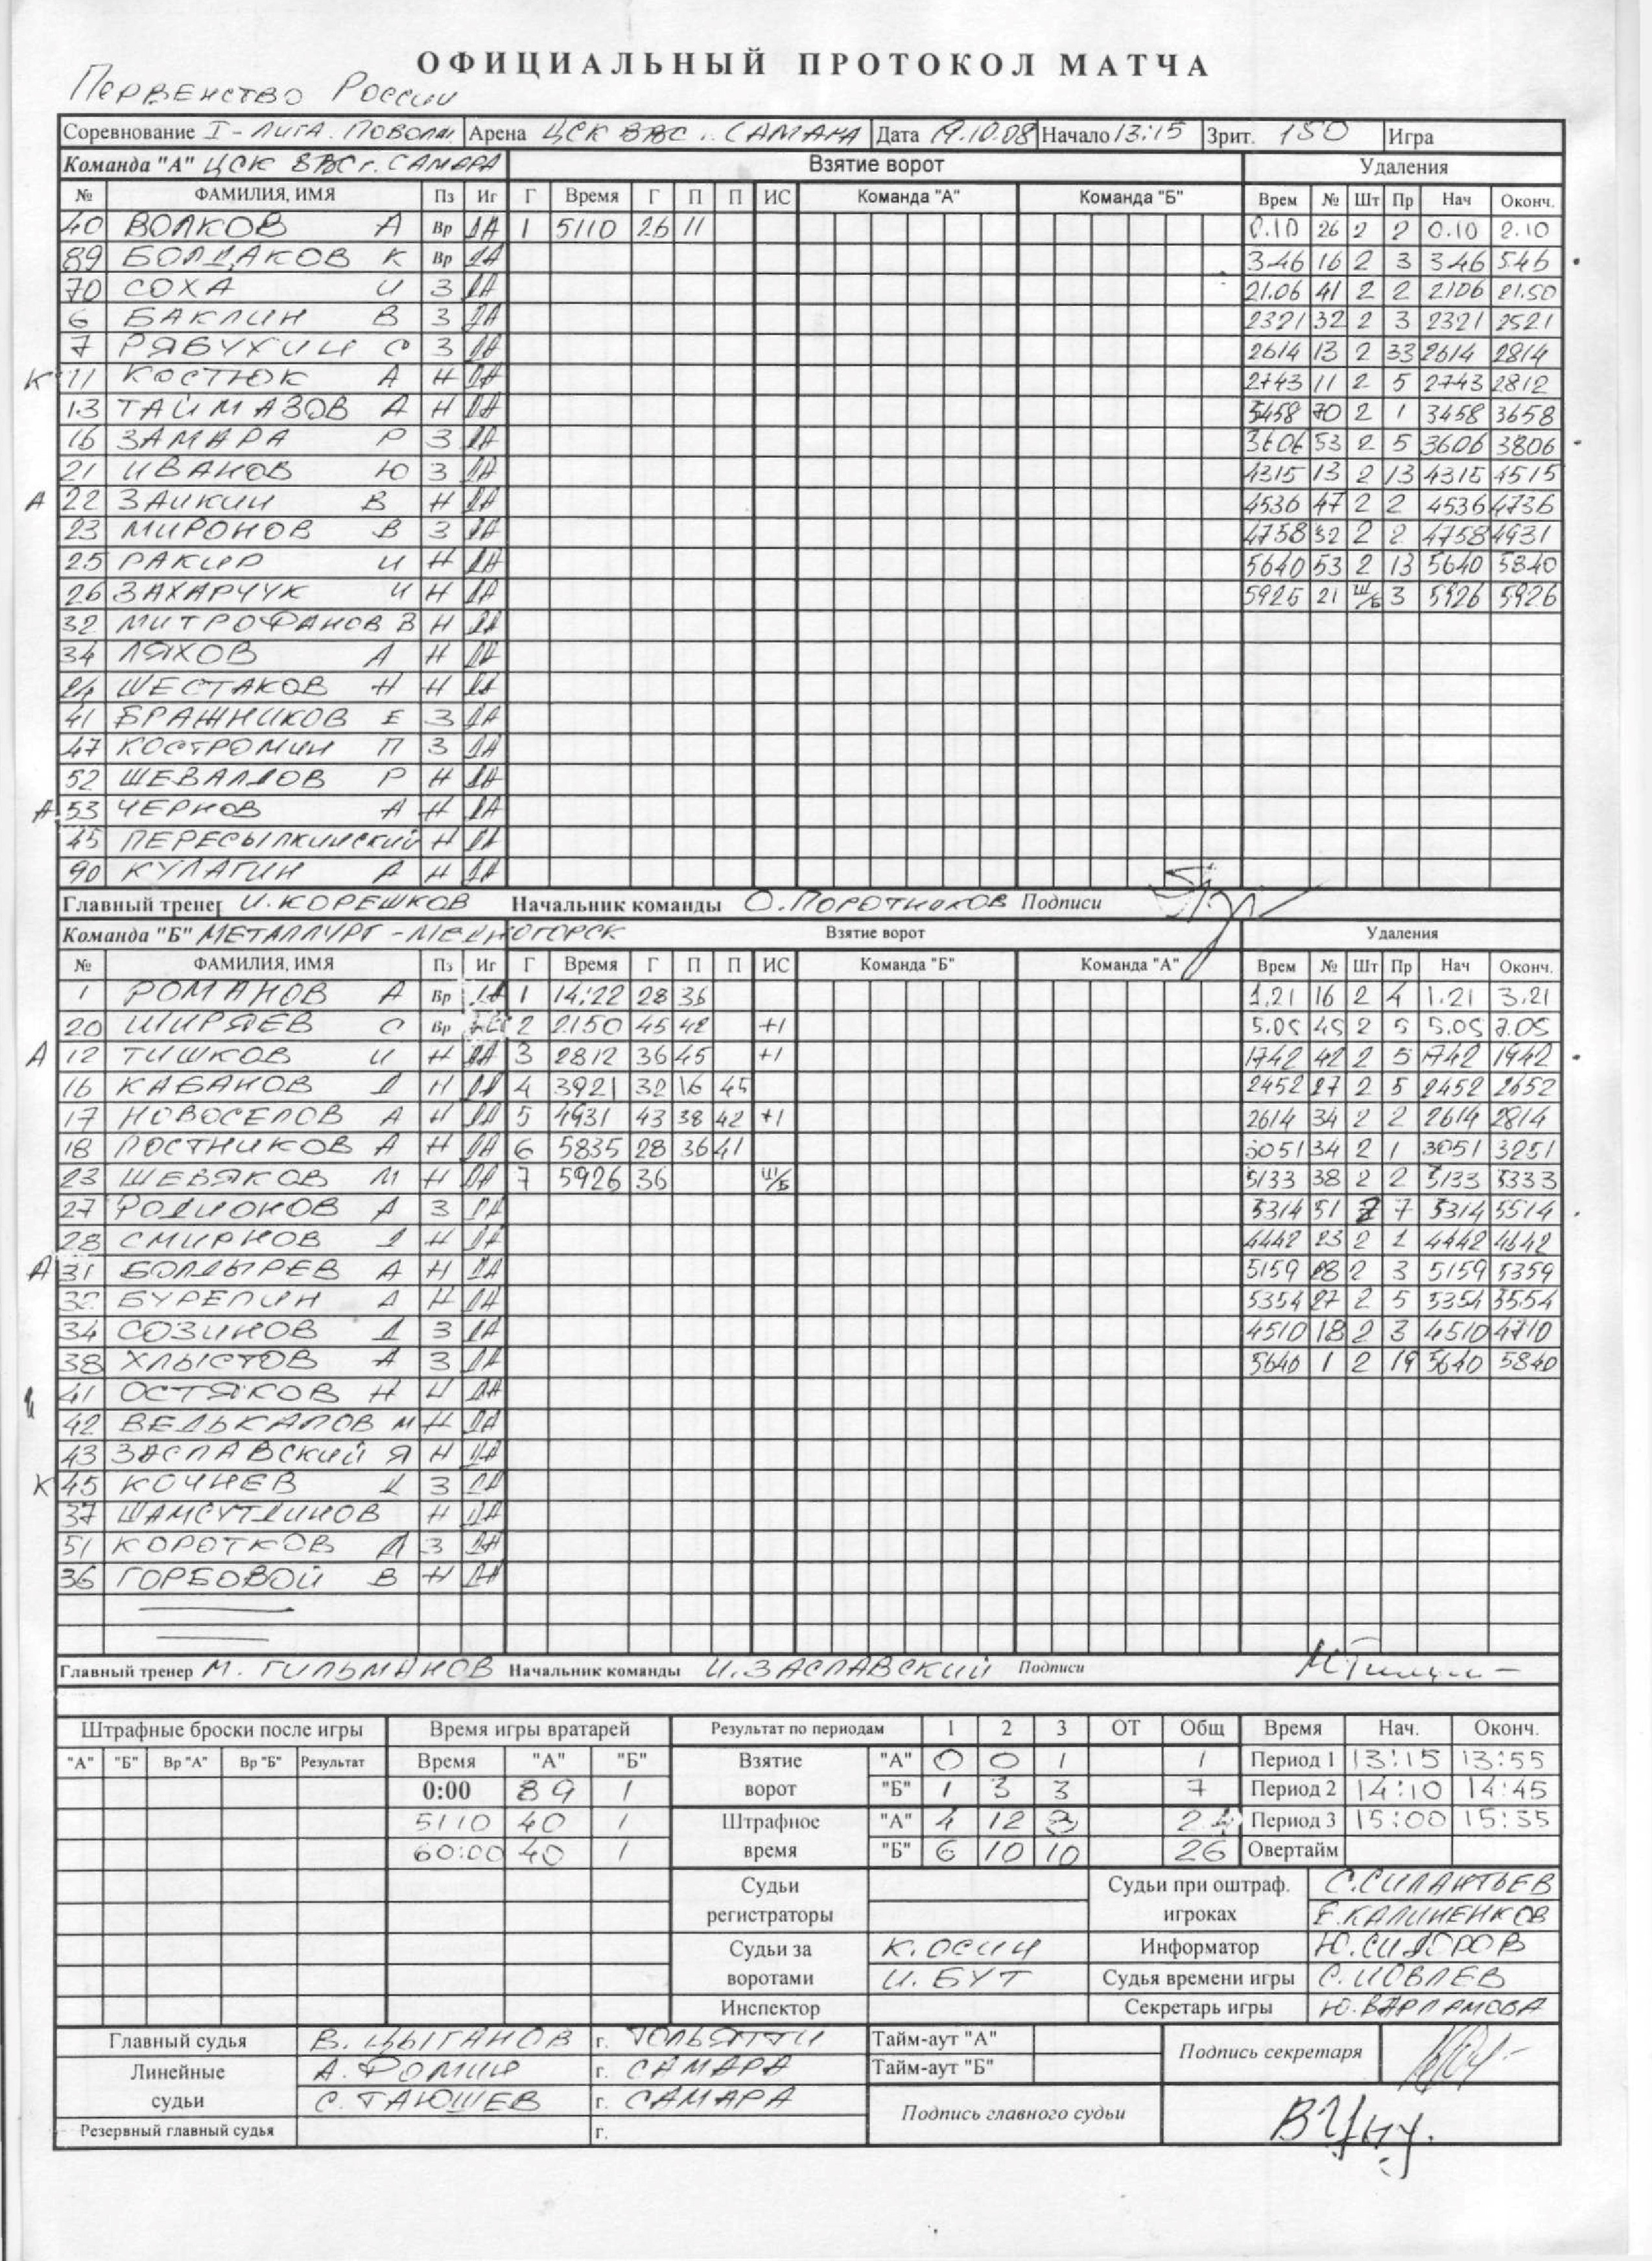 ОФИЦИАЛЬНЫЙ ПРОТОКОЛ МАТЧА
Первенство России
Соревнование I-лига. Поволж Арена ЦСК ВВС г. САМАРА Дата 19.10.08 Начало 13:15 Зрит. 150 Игра
Команда "А" ЦСК ВВС г. САМАРА Взятие ворот Удаления
№ ФАМИЛИЯ, ИМЯ Пз Иг Г Время Г П П ИС Команда "А" Команда "Б" Врем № Шт Пр Нач Оконч.
40 ВОЛКОВ А Вр ДА 1 5110 26 11 0.10 26 2 2 0.10 2.10
89 БОЛДАКОВ К Вр ДА 3.46 16 2 3 3.46 5.46
70 СОХА И З ДА 21.06 41 2 2 2106 21.50
6 БАКЛИН В З ДА 2321 32 2 3 2321 2521
7 РЯБУХИН С З ДА 2614 13 2 33 2614 2814
К 11 КОСТЮК А Н ДА 2743 11 2 5 2743 2812
13 ТАЙМАЗОВ А Н ДА 3458 70 2 1 3458 3658
16 ЗАМАРА Р З ДА 3606 53 2 5 3606 3806
21 ИВАНОВ Ю З ДА 4315 13 2 13 4315 4515
А 22 ЗАИКИН В Н ДА 4536 47 2 2 4536 4736
23 МИРОНОВ В З ДА 4758 32 2 2 4758 4931
25 РАКИР И Н ДА 5640 53 2 13 5640 5840
26 ЗАХАРЧУК И Н ДА 5926 21 Ш/Б 3 5926 5926
32 МИТРОФАНОВ В Н ДА
34 ЛЯХОВ А Н ДА
24 ШЕСТАКОВ Н Н ДА
41 БРАЖНИКОВ Е З ДА
47 КОСТРОМИН П З ДА
52 ШЕВАЛДОВ Р Н ДА
А 53 ЧЕРНОВ А Н ДА
45 ПЕРЕСЫПКИНСКИЙ Н ДА
90 КУЛАГИН А Н ДА
Главный тренер И. КОРЕШКОВ Начальник команды О. ПОРОТНИКОВ Подписи
Команда "Б" МЕТАЛЛУРГ - МЕДНОГОРСК Взятие ворот Удаления
№ ФАМИЛИЯ, ИМЯ Пз Иг Г Время Г П П ИС Команда "Б" Команда "А" Врем № Шт Пр Нач Оконч.
1 РОМАНОВ А Вр ДА 1 14:22 28 36 1.21 16 2 4 1.21 3.21
20 ШИРЯЕВ С Вр 2 2150 45 42 +1 5.05 45 2 5 5.05 7.05
А 12 ТИШКОВ И Н ДА 3 2812 36 45 +1 1742 42 2 5 1742 1942
16 КАБАНОВ Д Н ДА 4 3921 32 16 45 2452 27 2 5 2452 2652
17 НОВОСЕЛОВ А Н ДА 5 4931 43 38 42 +1 2614 34 2 2 2614 2814
18 ПОСТНИКОВ А Н ДА 6 5835 28 36 41 3051 34 2 1 3051 3251
23 ШЕВЯКОВ М Н ДА 7 5926 36 Ш/Б 5133 38 2 2 5133 5333
27 РОДИОНОВ А З ДА 5314 51 2 7 5314 5514
28 СМИРНОВ Д Н ДА 4442 23 2 1 4442 4642
А 31 БОЛДЫРЕВ А Н ДА 5159 28 2 3 5159 5359
32 БУРЕПИН А Н ДА 5354 27 2 5 5354 5554
34 СОЗИНОВ Д З ДА 4510 18 2 3 4510 4710
38 ХЛЫСТОВ А З ДА 5640 1 2 19 5640 5840
41 ОСТЯКОВ Н Н ДА
42 ВЕЛЬКАПОВ М Н ДА
43 ЗАСЛАВСКИЙ Я Н ДА
К 45 КОЧНЕВ Д З ДА
37 ШАМСУТДИНОВ Н ДА
51 КОРОТКОВ Д З ДА
36 ГОРБОВОЙ В Н ДА
Главный тренер М. ГИЛЬМАНОВ Начальник команды И. ЗАСЛАВСКИЙ Подписи
Штрафные броски после игры Время игры вратарей Результат по периодам 1 2 3 ОТ Общ Время Нач. Оконч.
"А" "Б" Вр "А" Вр "Б" Результат Время "А" "Б" Взятие "А" 0 0 1 1 Период 1 13:15 13:55
0:00 89 1 ворот "Б" 1 3 3 7 Период 2 14:10 14:45
5110 40 1 Штрафное "А" 4 12 8 24 Период 3 15:00 15:35
60:00 40 1 время "Б" 6 10 10 26 Овертайм
Судьи Судьи при оштраф. С. СИЛАНТЬЕВ
регистраторы игроках Е. КАЛИНЕНКОВ
Судьи за К. ОСИН Информатор Ю. СИДОРОВ
воротами И. БУТ Судья времени игры С. ИОВЛЕВ
Инспектор Секретарь игры Ю. ВАРЛАМОВА
Главный судья В. ЦЫГАНОВ г. ТОЛЬЯТТИ Тайм-аут "А" Подпись секретаря
Линейные А. ФОМИН г. САМАРА Тайм-аут "Б"
судьи С. ТАЮШЕВ г. САМАРА Подпись главного судьи
Резервный главный судья г.